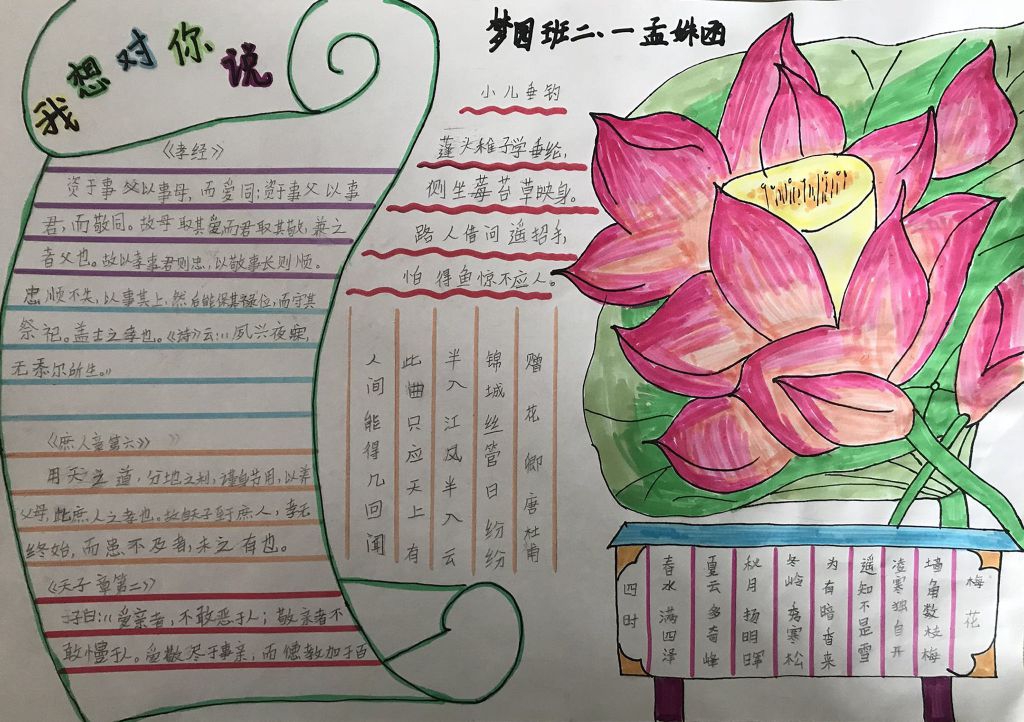 我想对你说
梦圆班二、一孟姝函
《孝经》
资于事父以事母,而爱同;资于事父以事
君,而敬同。故母取其爱,而君取其敬,兼之
者父也。故以孝事君则忠,以敬事长则顺。
忠顺不失,以事其上,然后能保其禄位,而守其
祭祀。盖士之孝也。《诗》云:“夙兴夜寐,
无忝尔所生。”
《庶人章第六》
用天之道,分地之利,谨身节用,以养
父母,此庶人之孝也。故自天子至于庶人,孝无
终始,而患不及者,未之有也。
《天子章第二》
子曰:“爱亲者,不敢恶于人;敬亲者不
敢慢于人。爱敬尽于事亲,而德教加于百
小儿垂钓
蓬头稚子学垂纶,
侧坐莓苔草映身。
路人借问遥招手,
怕得鱼惊不应人。
赠花卿 唐 杜甫
锦城丝管日纷纷
半入江风半入云
此曲只应天上有
人间能得几回闻
梅花
墙角数枝梅
凌寒独自开
遥知不是雪
为有暗香来
冬岭秀寒松
秋月扬明晖
夏云多奇峰
春水满四泽
四时